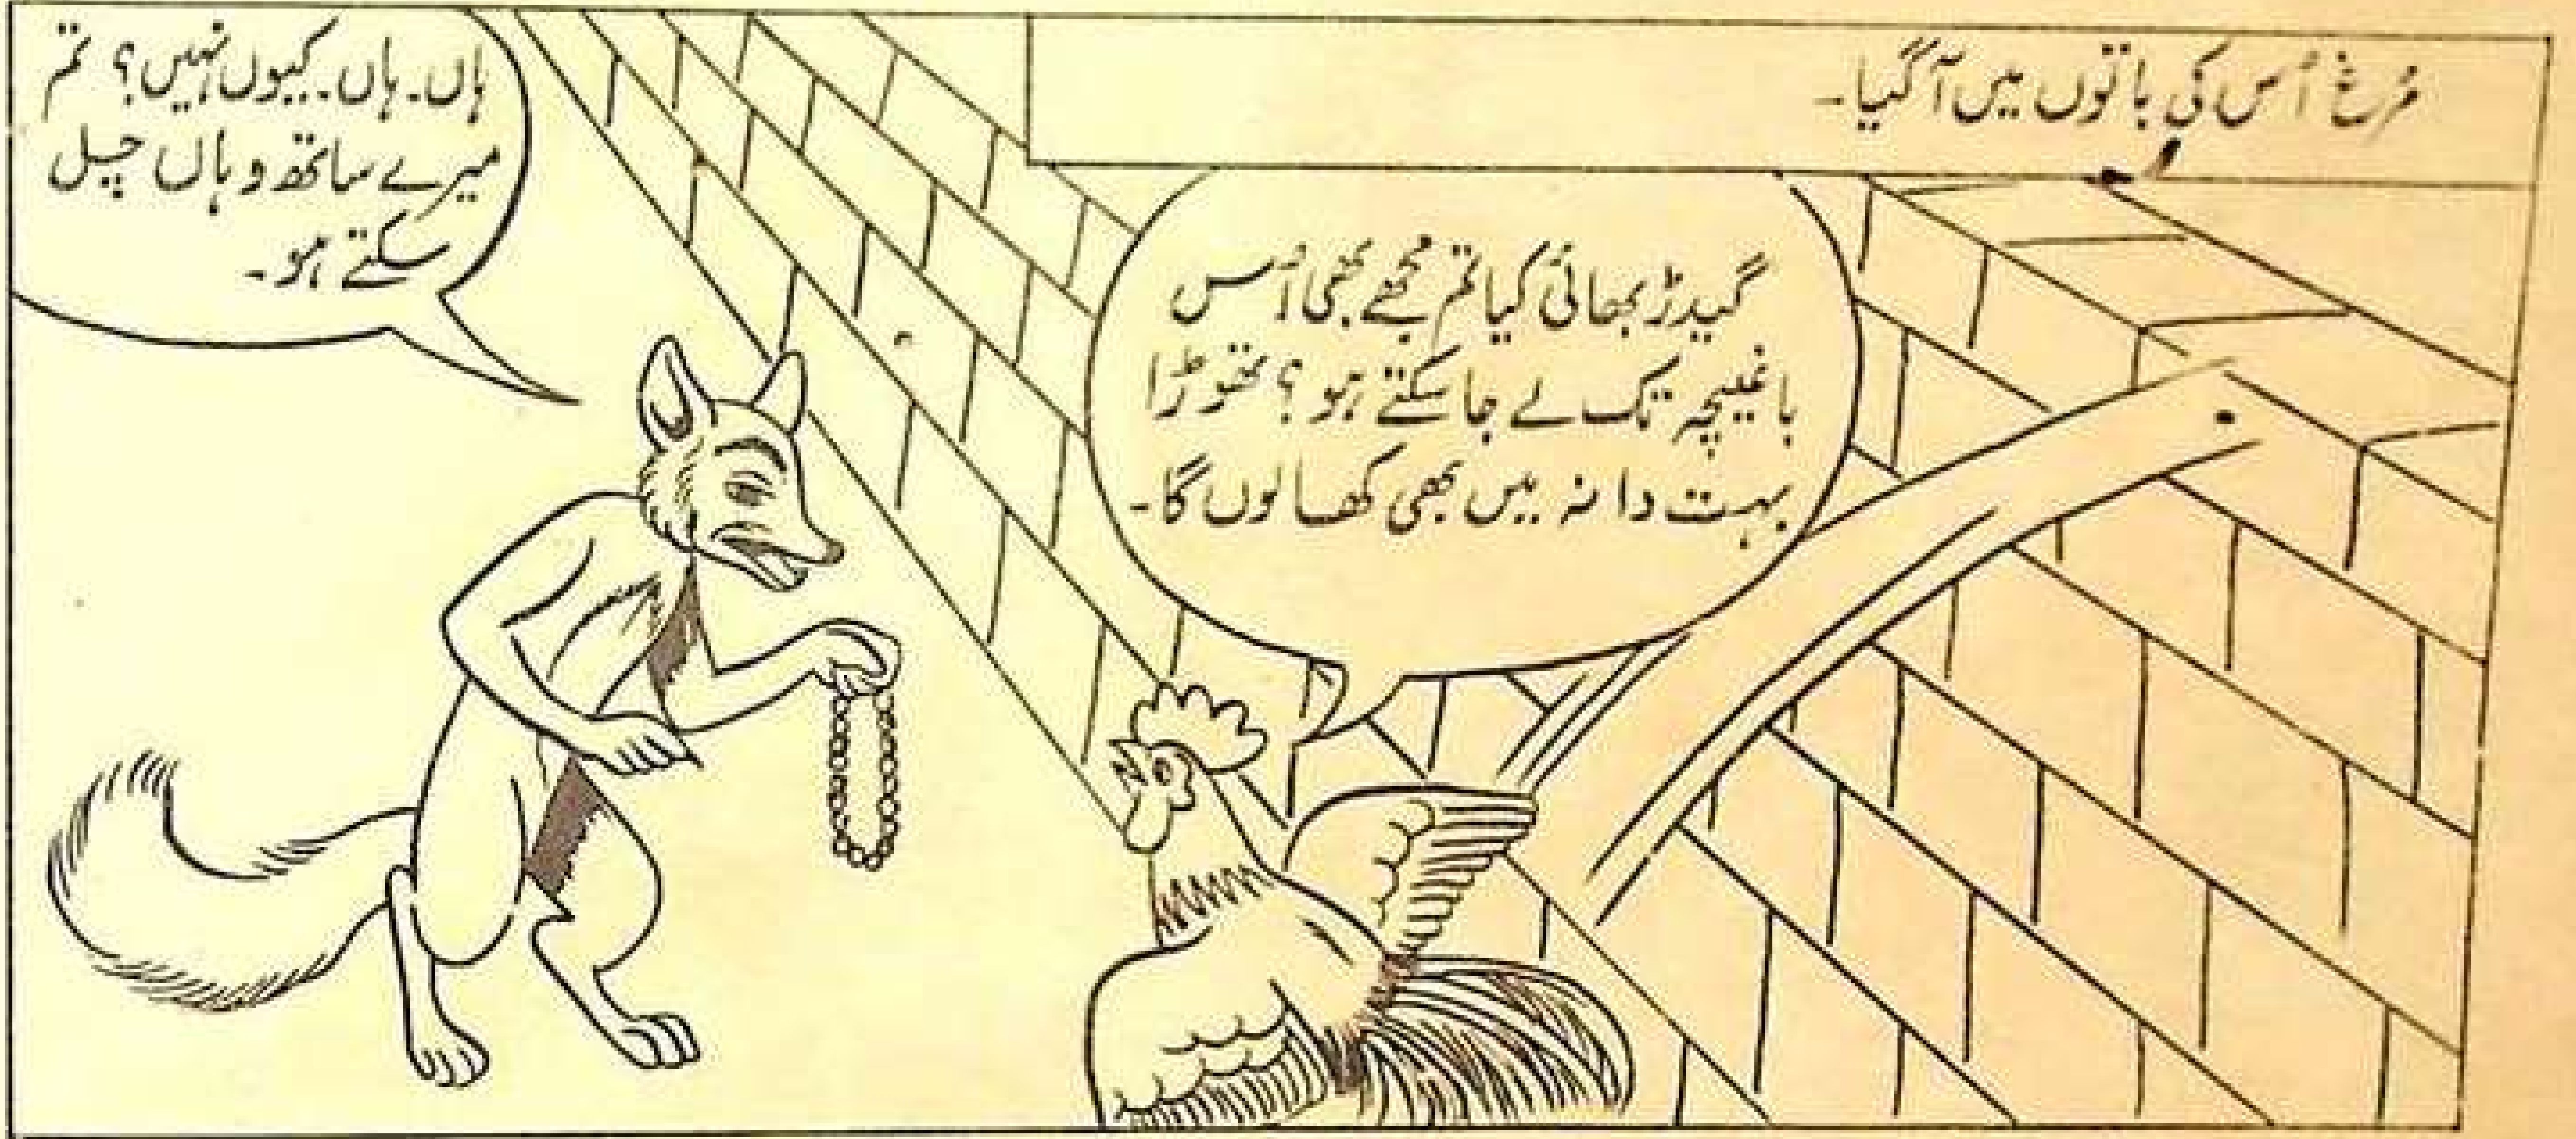 مُرغ اُس کی باتوں میں آگیا۔
گیدڑ بھائی کیا تم مجھے بھی اُس
باغیچہ تک لے جا سکتے ہو؟ تھوڑا
بہت دانہ میں بھی کھا لوں گا۔
ہاں۔ ہاں۔ کیوں نہیں؟ تم
میرے ساتھ وہاں چل
سکتے ہو۔